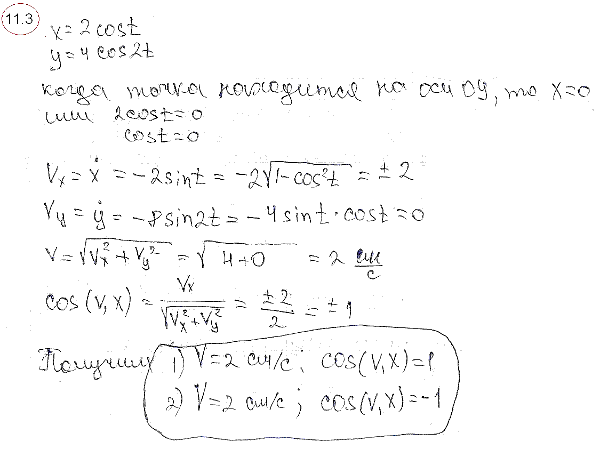 11.3
x = 2 cost
y = 4 cos 2t
когда точка находится на оси OY, то x=0
или 2cost=0
cost=0
Vx = ẋ = -2 sint = -2√(1-cos²t) = ±2
Vy = ẏ = -8 sin2t = -4 sint·cost = 0
V = √(Vx² + Vy²) = √(4+0) = 2 см/с
cos(V,X) = Vx/√(Vx²+Vy²) = ±2/2 = ±1
Получим 1) V=2 см/с; cos(V,X)=1
2) V=2 см/с; cos(V,X)=-1